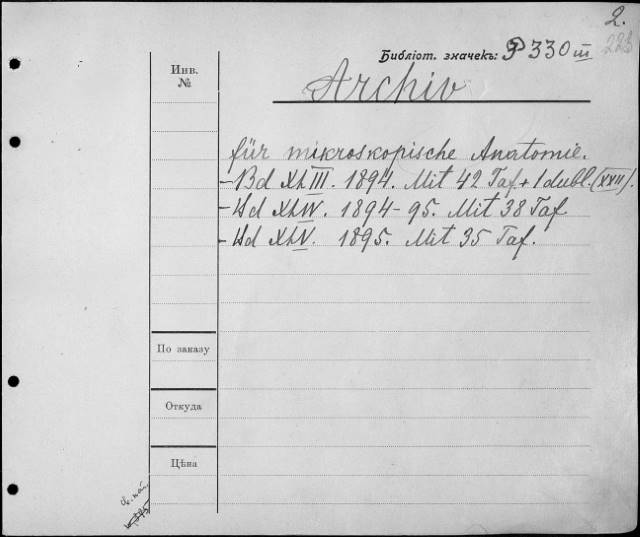 2.
Библіот. значекъ: 330 III
Инв.
№
Archiv
für mikroskopische Anatomie.
- Bd XLIII. 1894. Mit 42 Taf + 1 dubl. (XXII).
- Bd XLIV. 1894-95. Mit 38 Taf
- Bd XLV. 1895. Mit 35 Taf.
По заказу
Откуда
Цѣна